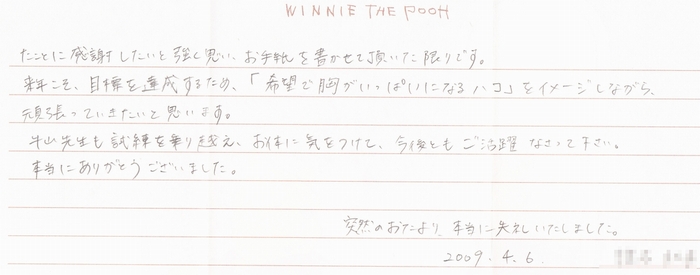 WINNIE THE POOH
たことに感謝したいと強く思い、お手紙を書かせて頂いた限りです。
来年こそ、目標を達成するため、「希望で胸がいっぱいになるハコ」をイメージしながら、
頑張っていきたいと思います。
牛山先生も試練を乗り越え、お体に気をつけて、今後ともご活躍なさって下さい。
本当にありがとうございました。
突然のおたより、本当に失礼いたしました。
2009. 4. 6.